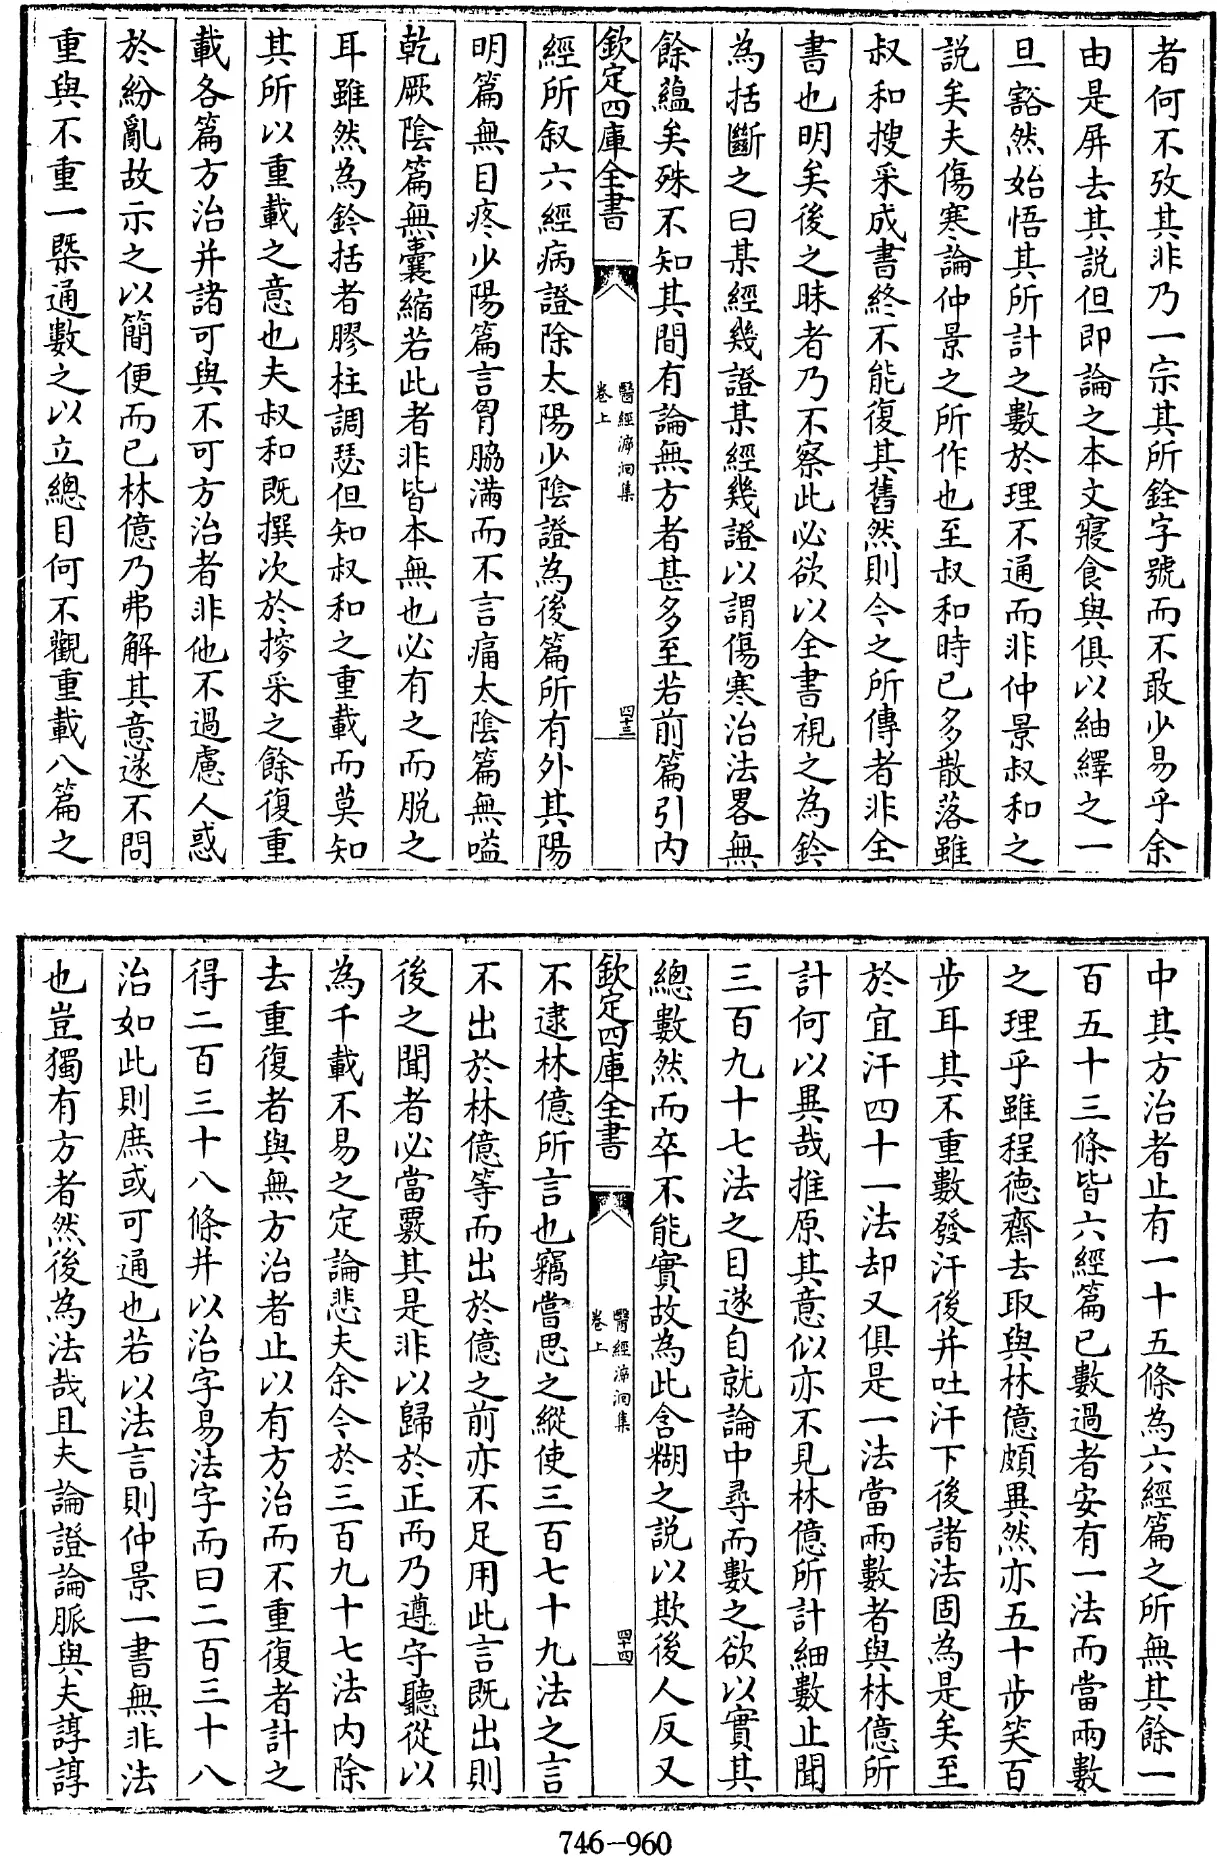 者何不攷其非乃一宗其所銓字號而不敢少易乎余
由是屏去其説但即論之本文寢食與俱以紬繹之一
旦豁然始悟其所計之數於理不通而非仲景叔和之
説矣夫傷寒論仲景之所作也至叔和時已多散落雖
叔和搜采成書終不能復其舊然則今之所傳者非全
書也明矣後之昧者乃不察此必欲以全書視之為鈐
為括斷之曰某經幾證某經幾證以謂傷寒治法畧無
餘藴矣殊不知其間有論無方者甚多至若前篇引内
欽定四庫全書
醫經溯洄集
卷上
四十三
經所叙六經病證除太陽少陰證為後篇所有外其陽
明篇無目疼少陽篇言胷脇滿而不言痛太陰篇無嗌
乾厥陰篇無囊縮若此者非皆本無也必有之而脱之
耳雖然為鈐括者膠柱調瑟但知叔和之重載而莫知
其所以重載之意也夫叔和既撰次於搜采之餘復重
載各篇方治并諸可與不可方治者非他不過慮人惑
於紛亂故示之以簡便而已林億乃弗解其意遂不問
重與不重一槩通數之以立總目何不觀重載八篇之
中其方治者止有一十五條為六經篇之所無其餘一
百五十三條皆六經篇已數過者安有一法而當兩數
之理乎雖程德齋去取與林億頗異然亦五十步笑百
步耳其不重數發汗後并吐汗下後諸法固為是矣至
於宜汗四十一法却又俱是一法當兩數者與林億所
計何以異哉推原其意似亦不見林億所計細數止聞
三百九十七法之目遂自就論中尋而數之欲以實其
總數然而卒不能實故為此含糊之説以欺後人反又
欽定四庫全書
醫經溯洄集
卷上
四十四
不逮林億所言也竊嘗思之縱使三百七十九法之言
不出於林億等而出於億之前亦不足用此言既出則
後之聞者必當覈其是非以歸於正而乃遵守聽從以
為千載不易之定論悲夫余今於三百九十七法内除
去重復者與無方治者止以有方治而不重復者計之
得二百三十八條并以治字易法字而曰二百三十八
治如此則庶或可通也若以法言則仲景一書無非法
也豈獨有方者然後為法哉且夫論證論脈與夫諄諄
746-960